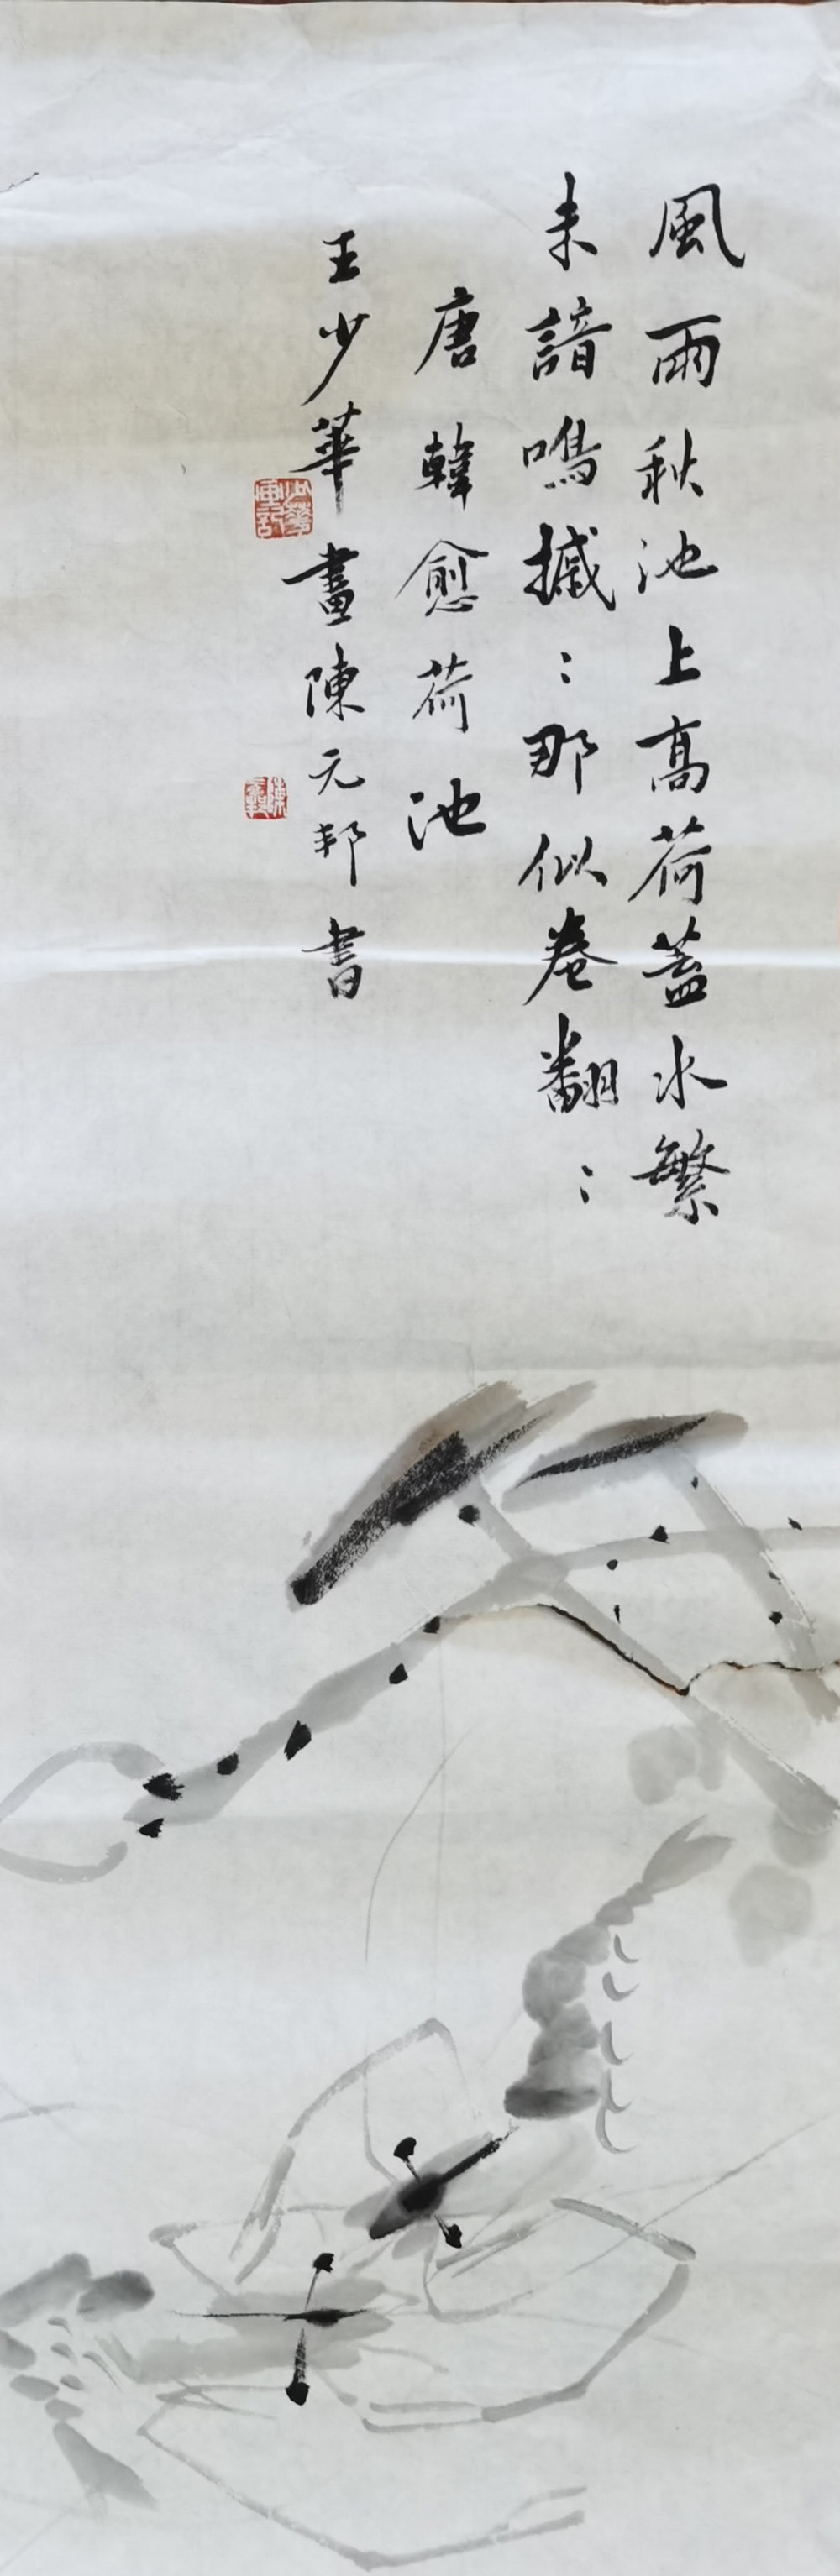 風雨秋池上高荷蓋水繁
未諳鳴摵：那似卷翻：
唐韓愈荷池
王少華畫陳元邦書